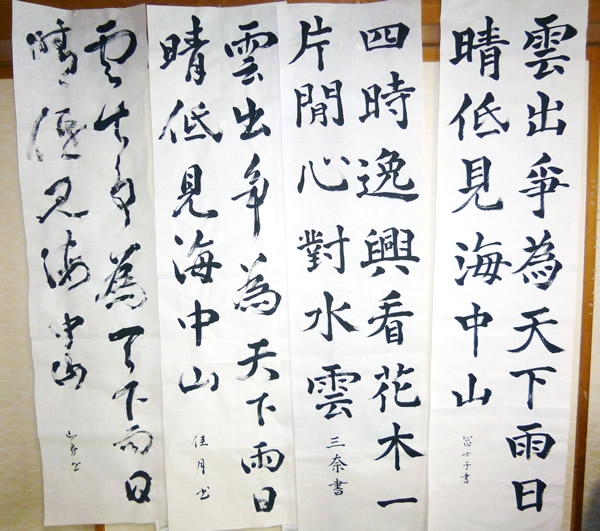 雲出爭為天下雨日
晴低見海中山
冨士子書
四時逸興看花木一
片閒心對水雲
三奈書
雲出争為天下雨日
晴低見海中山
佳月書
雲出争為天下雨日
晴低見海中山